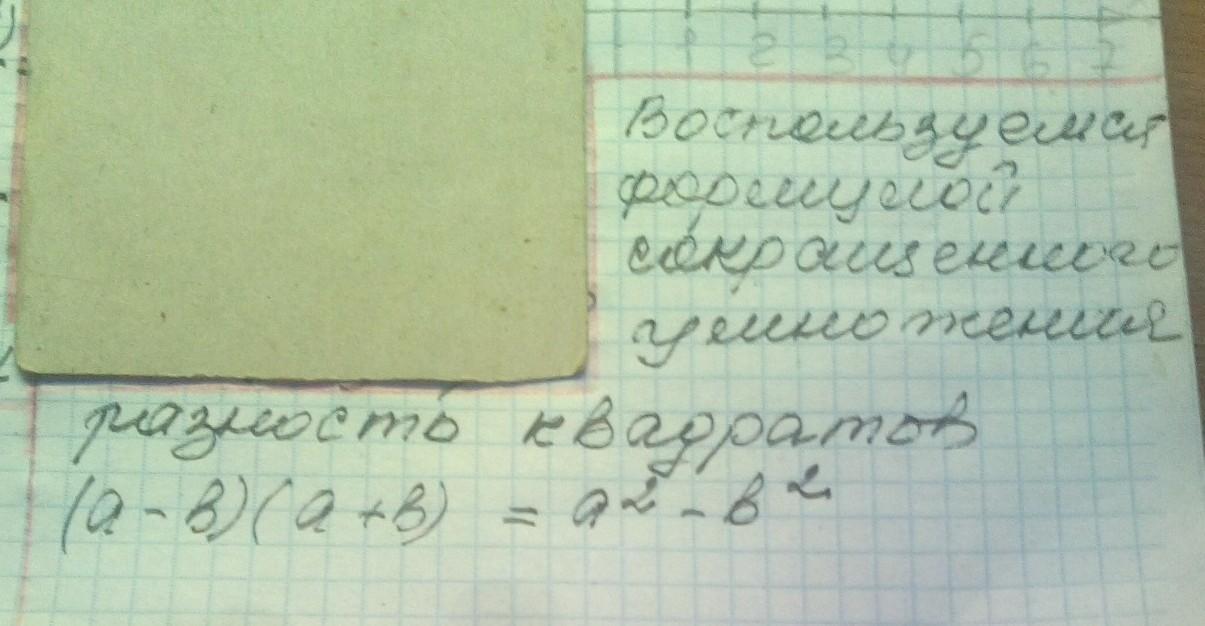 1 2 3 4 5 6 7
Воспользуемся
формулой
сокращенного
умножения
разность квадратов
(а - в)(а + в) = а² - в²